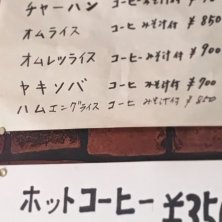 チャーハン コーヒ みそ汁付 ¥850
オムライス コーヒ みそ汁付 ¥850
オムレツライス コーヒーみそ汁付 ¥900
ヤキソバ コーヒ みそ汁付 ¥700
ハムエッグライス コーヒ みそ汁付 ¥850
ホットコーヒー ¥35